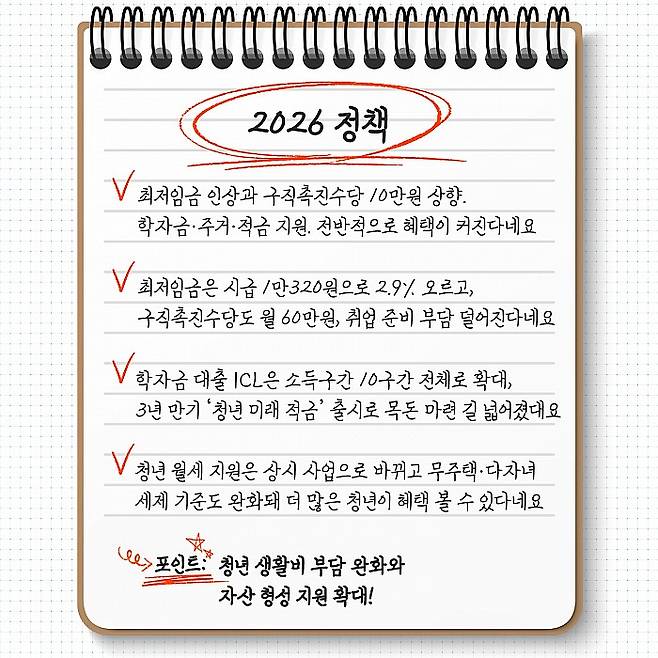 2026 정책
최저임금 인상과 구직촉진수당 10만원 상향.
학자금·주거·적금 지원. 전반적으로 혜택이 커진다네요
최저임금은 시급 1만320원으로 2.9% 오르고,
구직촉진수당도 월 60만원, 취업 준비 부담 덜어진다네요
학자금 대출 ICL은 소득구간 10구간 전체로 확대,
3년 만기 ‘청년 미래 적금’ 출시로 목돈 마련 길 넓어졌대요
청년 월세 지원은 상시 사업으로 바뀌고 무주택·다자녀
세제 기준도 완화돼 더 많은 청년이 혜택 볼 수 있다네요
포인트: 청년 생활비 부담 완화와
자산 형성 지원 확대!